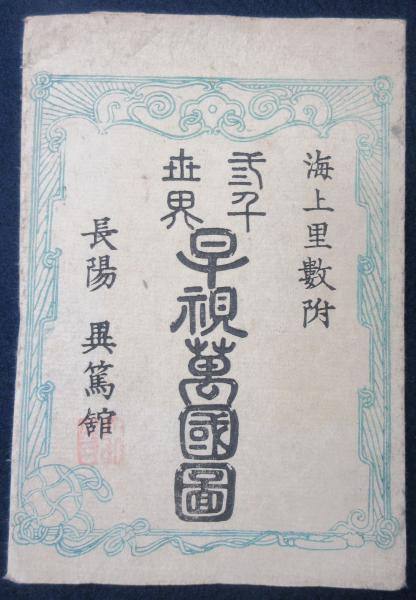 海上里數附
弎千
世界
早視萬國圖
長陽 異篤舘